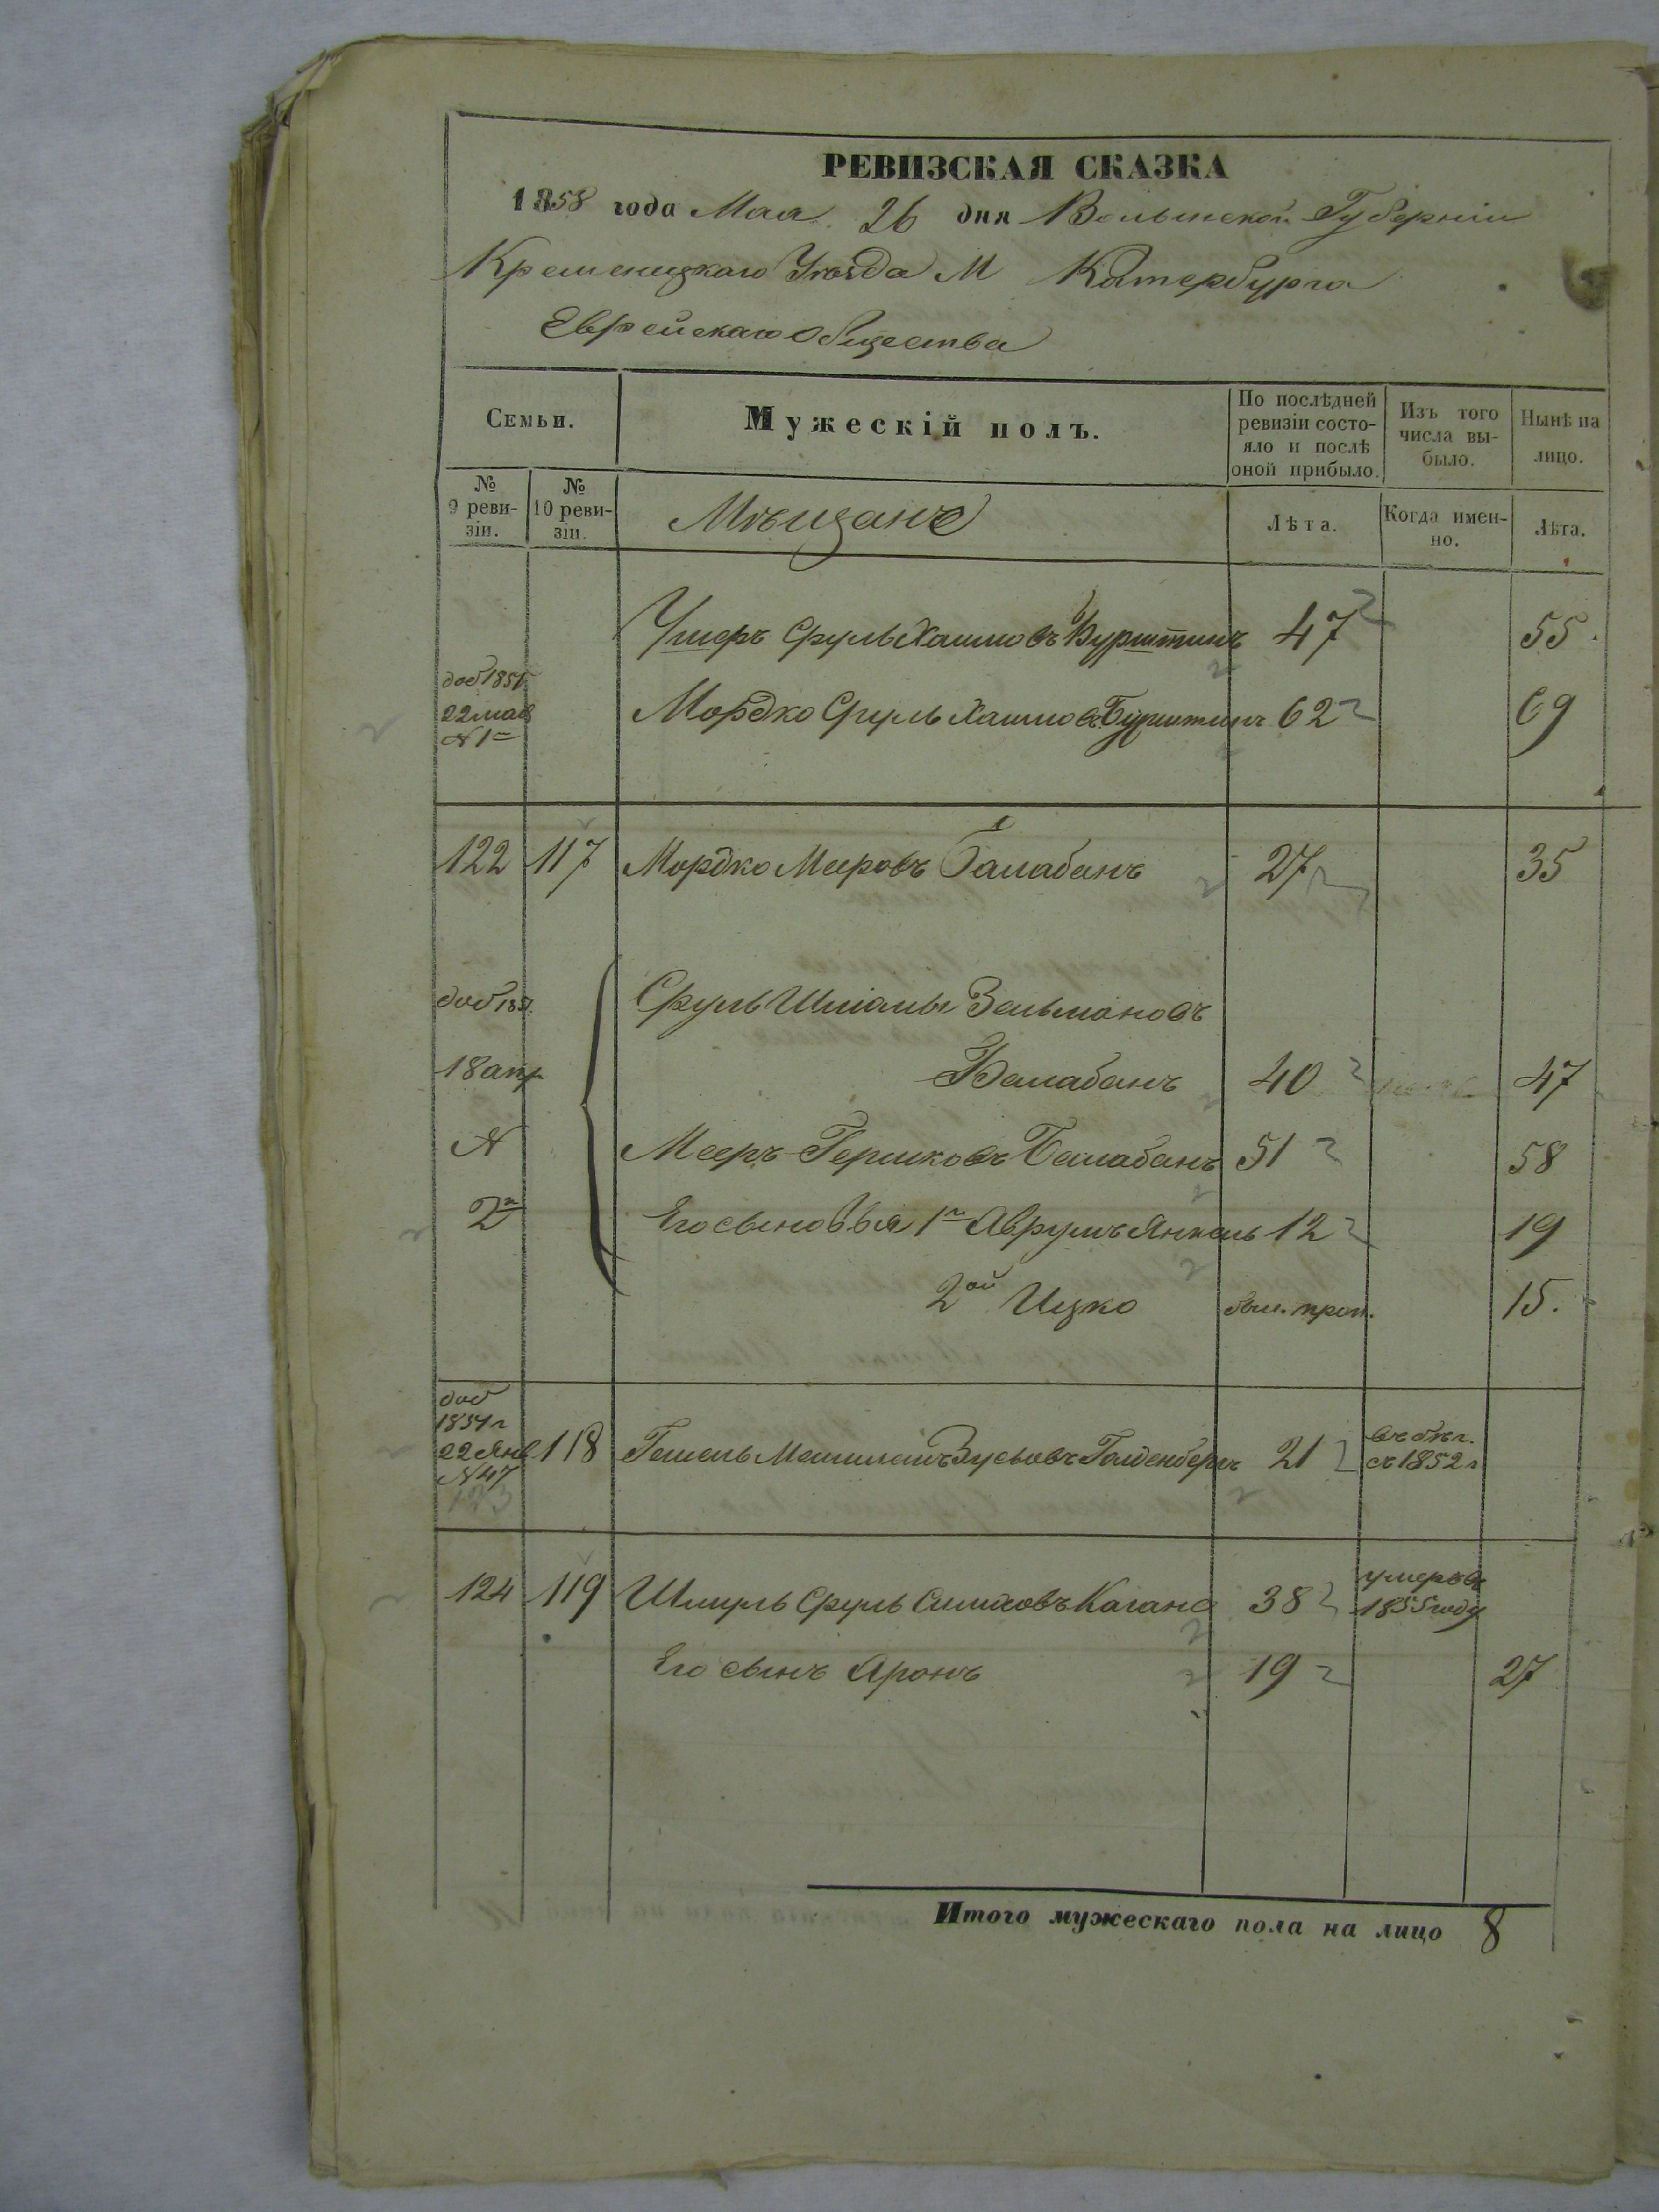 РЕВИЗСКАЯ СКАЗКА
1858 года Мая 26 дня Волынской Губерніи
Кременецкаго Уѣзда М Катербурга
Еврейскаго Общества
Семьи.
Мужескій полъ.
По послѣдней ревизіи состояло и послѣ оной прибыло.
Изъ того числа выбыло.
Нынѣ на лицо.
№ 9 ревизіи.
№ 10 ревизіи.
Мѣщане
Лѣта.
Когда именно.
Лѣта.
Ушеръ Сруль Хаимовъ Бурштинъ 47 55
доб 1851
22 мая Мордко Сруль Хаимовъ Бурштинъ 62 69
N 1
122 117 Мордко Мееровъ Балабанъ 27 35
доб 185 Сруль Шмаль Зельмановъ
18 апр Балабанъ 40 47
N Мееръ Гершковъ Балабанъ 51 58
2 Его сыновья 1 Аврумъ Янкель 12 19
2ой Ицко был. проп. 15.
доб
1851 г
22 Янв 118 Гешель Зусьовъ Голденбергъ 21 въ бѣг. съ 1852 г
N 47
123
124 119 Шмуль Сруль Симховъ Кагано 38 умеръ въ 1855 году
Его сынъ Аронъ 19 27
Итого мужескаго пола на лицо 8